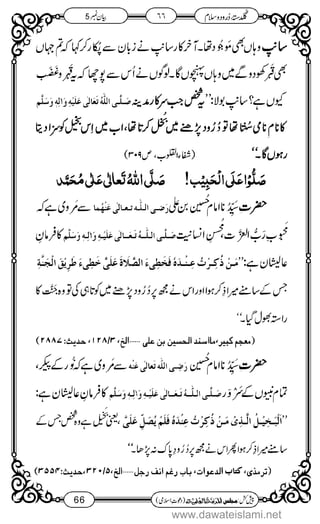 گلدستۂ دُرود و سلام ٦٦ بیان نمبر 5
سانپ وہاں بھی مَوجُود تھا۔ آخرِ کار سانپ نے زبان سے پُکار کر کہا کہ تم جہاں
بھی قَبْر کھودو گے میں وہاں پہنچوں گا۔ لوگوں نے اُس سے پوچھا کہ یہ قَہْر و غَضَب
کیوں ہے؟ سانپ بولا: ’’یہ شخص جب سرکارِ مدینہ صَلَّی اللّٰہُ تَعَالٰی عَلَیْہِ وَاٰلِہٖ وَسَلَّم
کا نامِ نامی سُنتا تھا تو دُرُود پڑھنے میں بُخْل کرتا تھا، اب میں اِس بخیل کو سزا دیتا
رہوں گا۔‘‘ (شفاء القلوب، ص ۳۰۹)
صَلُّوْا عَلَی الْحَبِیْب! صَلَّی اللّٰہُ تَعَالٰی عَلٰی مُحَمَّد
حضرت سَیِّدُنا امام حُسین بن علی رَضِی اللّٰہ تعالٰی عَنْہما سے مَروی ہے کہ
محبوبِ رَبُّ العزت، مُحسنِ انسانیت صَلَّی اللّٰہُ تَعَالٰی عَلَیْہِ وَاٰلِہٖ وَسَلَّم کا فرمانِ
عالیشان ہے: ’’مَنْ ذُکِرْتُ عِنْدَہٗ فَخَطِیَٔ الصَّلَاۃَ عَلَیَّ خَطِیَٔ طَرِیْقَ الْجَنَّۃِ
جس کے سامنے میرا ذِکر ہوا اور اس نے مجھ پر دُرُود پڑھنے میں کوتاہی کی تو وہ جَنَّت کا
راستہ بھول گیا۔‘‘
(معجم کبیر، مااسند الحسین بن علی ......الخ، ۱۲۸/۳، حدیث: ۲۸۸۷)
حضرت سَیِّدُنا امام حُسین رَضِی اللّٰہ تعالٰی عَنْہ سے مَروی ہے کہ نُور کے پیکر،
تمام نبیوں کے سَرْوَر صَلَّی اللّٰہُ تَعَالٰی عَلَیْہِ وَاٰلِہٖ وَسَلَّم کا فرمانِ عالیشان ہے:
’’اَلْبَخِیْلُ الَّذِیْ مَنْ ذُکِرْتُ عِنْدَہٗ فَلَمْ یُصَلِّ عَلَیَّ، یعنی بخیل ہے وہ شخص جس کے
سامنے میرا ذِکر ہو پھر اس نے مجھ پر دُرُودِ پاک نہ پڑھا۔‘‘
(ترمذی، کتاب الدعوات، باب رغم انف رجل ......الخ، ۳۲۰/۵، حدیث: ۳۵۵۴)
66 پیش کش: مجلس المدینۃ العلمیۃ (دعوتِ اسلامی)
www.dawateislami.net